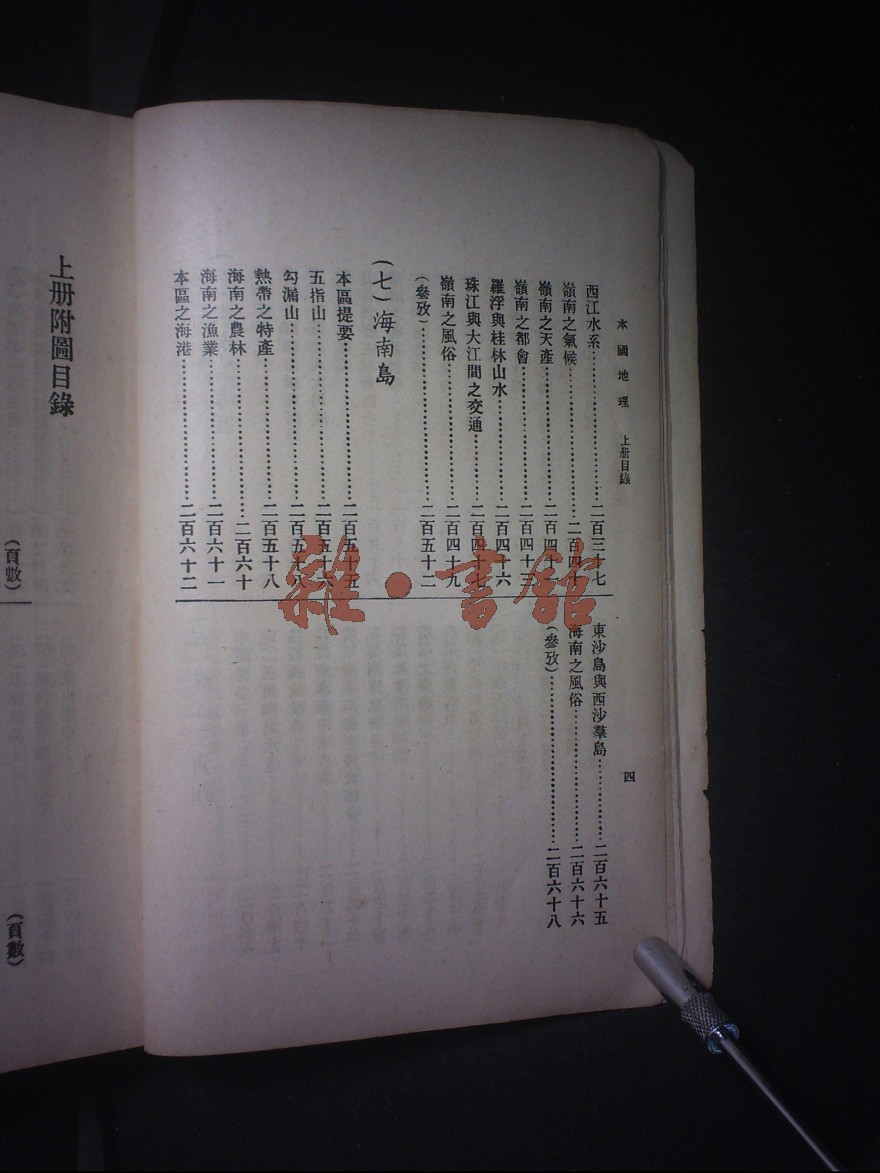 本國地理 上册目錄 四
西江水系……二百三十七
嶺南之氣候……二百四十
嶺南之天產……二百四十
嶺南之都會……二百四十三
羅浮與桂林山水……二百四十六
珠江與大江間之交通……二百四十七
嶺南之風俗……二百四十九
(參攷)……二百五十二
(七)海南島
本區提要……二百五十五
五指山……二百五十六
勾漏山……二百五十八
熱帶之特產……二百五十八
海南之農林……二百六十
海南之漁業……二百六十一
本區之海港……二百六十二
東沙島與西沙羣島……二百六十五
海南之風俗……二百六十六
(參攷)……二百六十八
上册附圖目錄
(頁數)
(頁數)
雜·書館